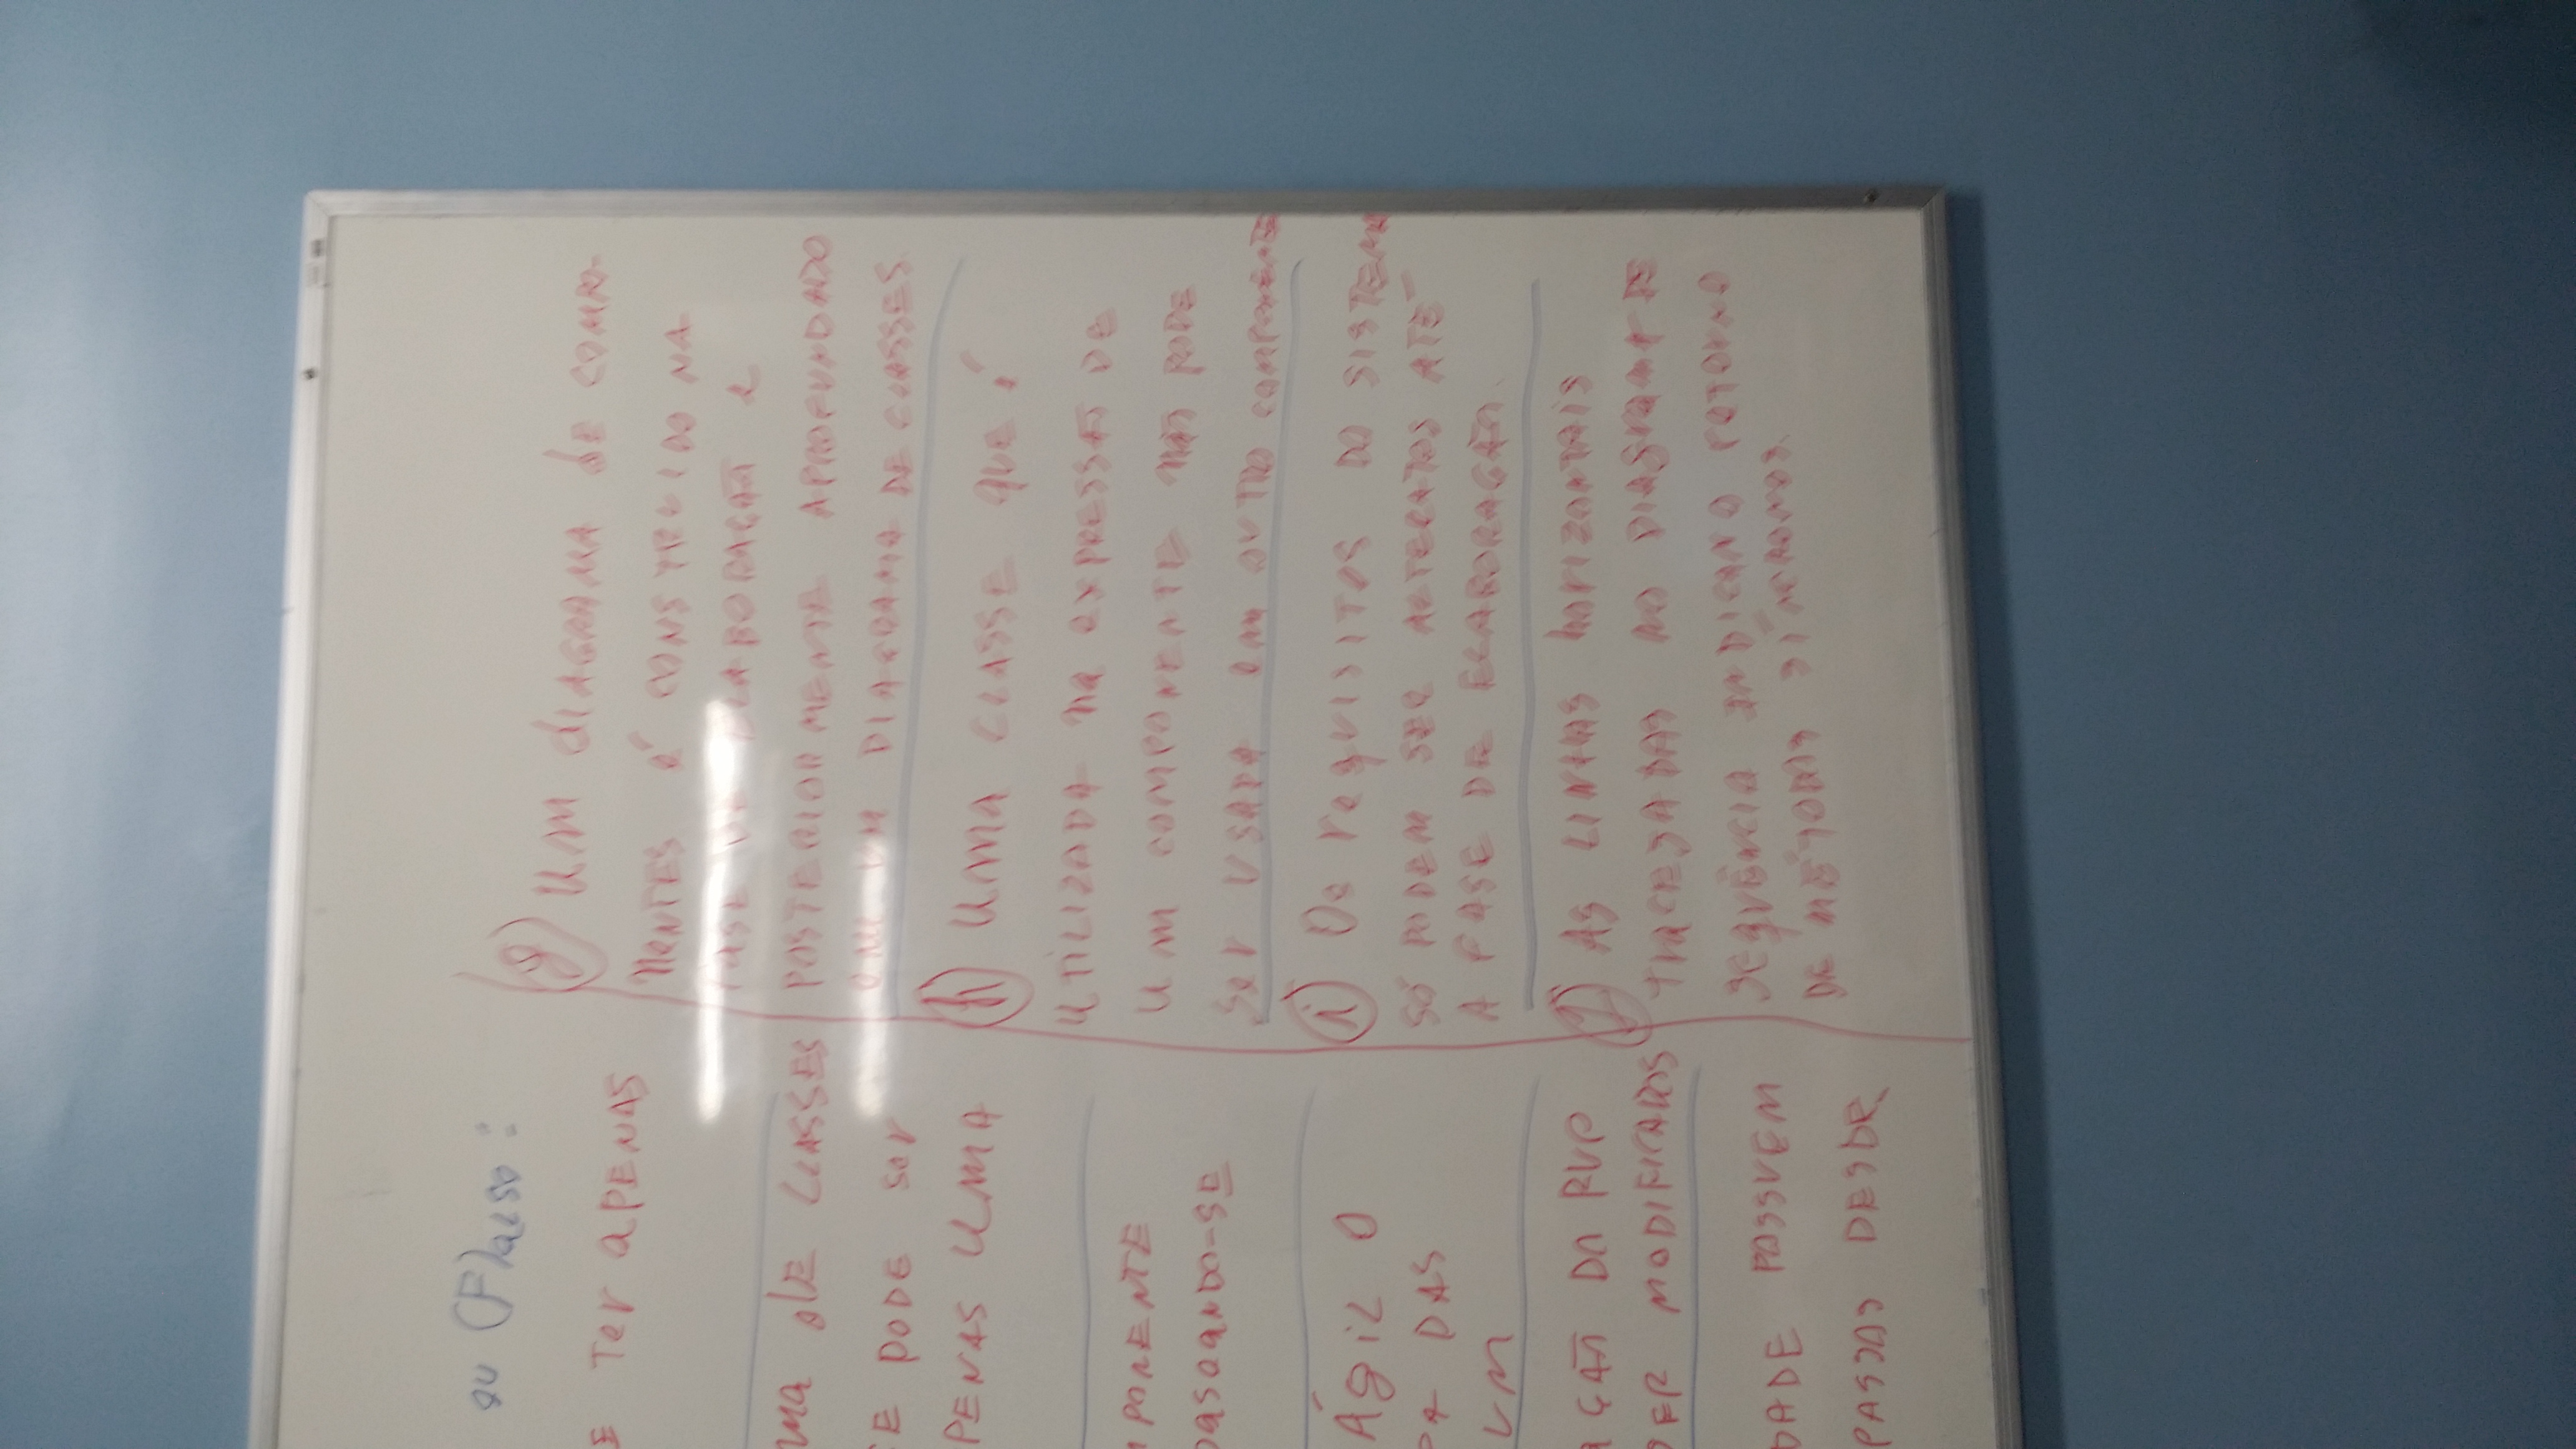 ou (F)also:
E Ter APENAS
ma dE CLASSES
SE PODE ser
PENAS UMA
MPONENTE
baseando-SE
Ágil O
PA DAS
UM
AÇÃO DO RUP
DER MODIFICADOS
DADE POSSUEM
PASSAS DESDE
(g) UM DIAGRAMA de COMPO-
NENTES é CONSTRUIDO NA
FASE DE ELABORAÇÃO e
POSTERIORMENTE APROFUNDADO
em UM DIAGRAMA DE CLASSES
(h) UMA CLASSE que é
UTILIZADA na EXPRESSÃO DE
UM COMPONENTE não PODE
Ser USADA em OUTRO COMPONENTE
(i) Os requisitos DO SISTEMA
SÓ PODEM SER ALTERATOS ATÉ
A FASE DE ELABORAÇÃO.
(j) AS LINHAS horizontais
TRACEJADAS NO DIAGRAMA DE
SEQUÊNCIA INDICAM O RETORNO
DE MÉTODOS SÍNCRONOS.